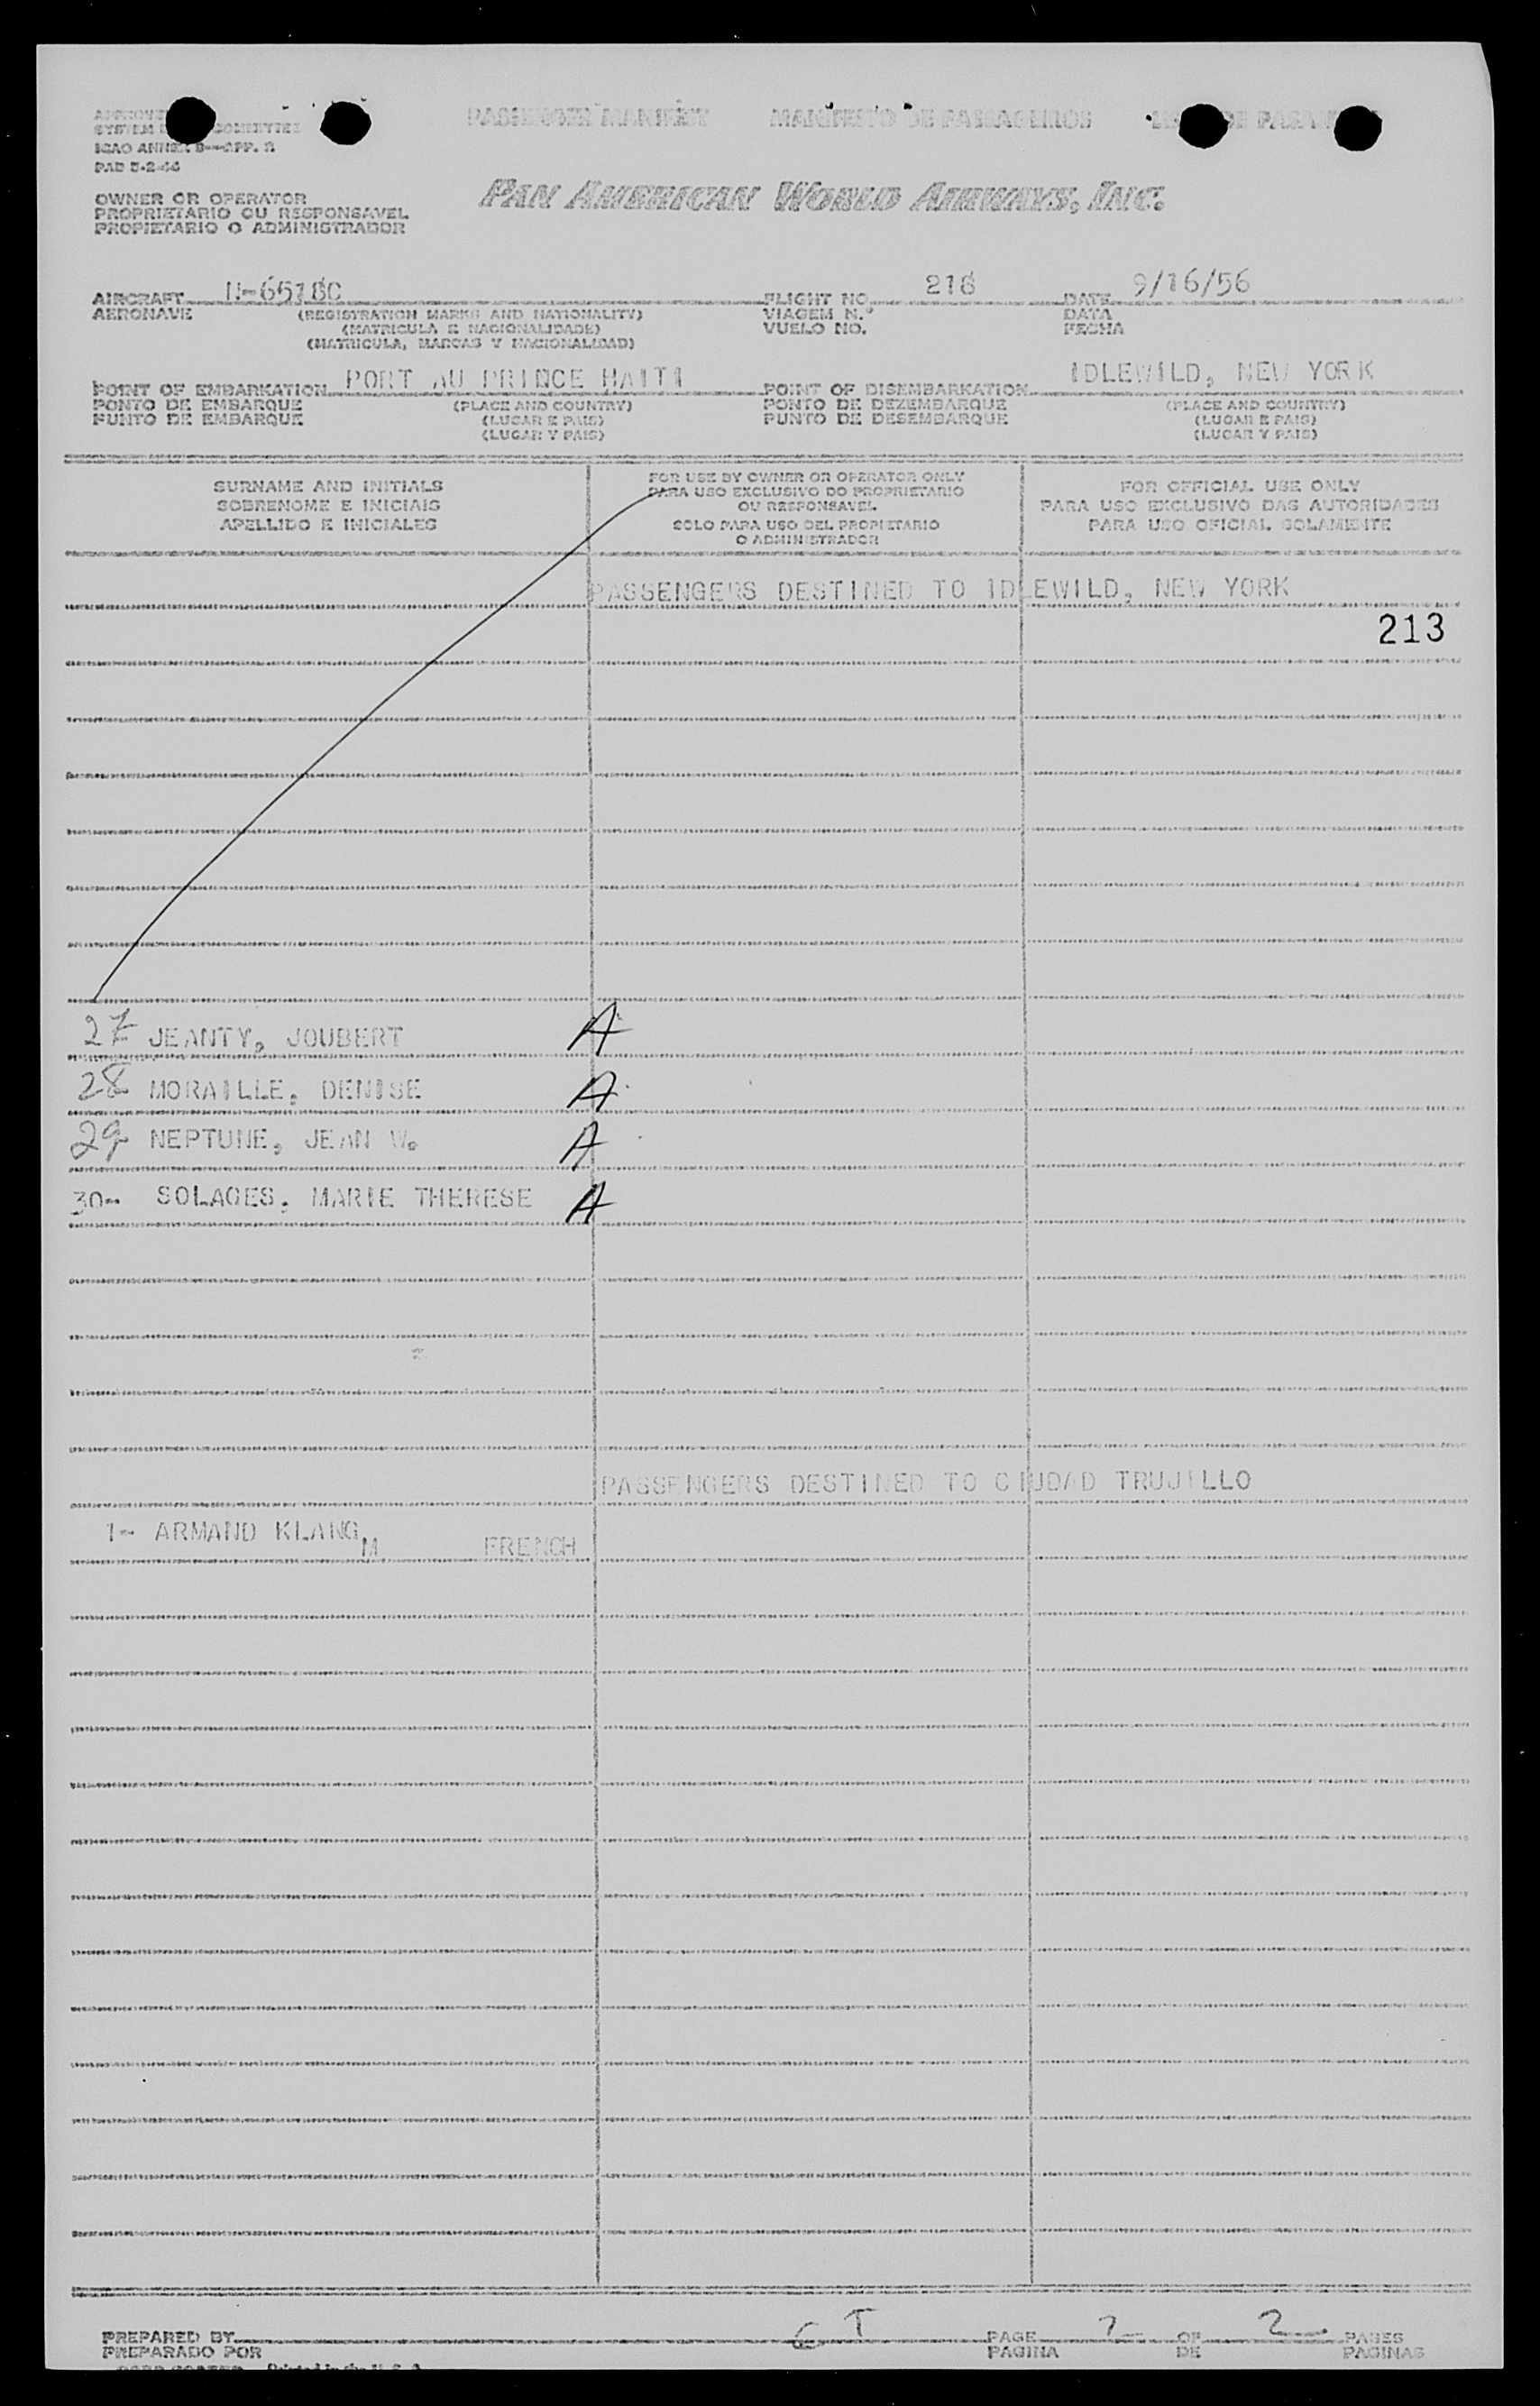 PASSENGER MANIFEST MANIFESTO DE PASSAGEIROS
SYSTEM
ICAO ANNEX 9—APP.
PAD 5-2-46
OWNER OR OPERATOR
PROPRIETARIO OU RESPONSAVEL
PROPIETARIO O ADMINISTRADOR
PAN AMERICAN WORLD AIRWAYS, INC.
AIRCRAFT N-6518C FLIGHT NO. 218 DATE 9/16/56
AERONAVE (REGISTRATION MARKS AND NATIONALITY) VIAGEM N.º DATA
(MATRICULA E NACIONALIDADE) VUELO NO. FECHA
(MATRICULA, MARCAS Y NACIONALIDAD)
POINT OF EMBARKATION PORT AU PRINCE HAITI POINT OF DISEMBARKATION IDLEWILD, NEW YORK
PONTO DE EMBARQUE (PLACE AND COUNTRY) PONTO DE DEZEMBARQUE (PLACE AND COUNTRY)
PUNTO DE EMBARQUE (LUGAR E PAIS) PUNTO DE DESEMBARQUE (LUGAR E PAIS)
(LUGAR Y PAIS) (LUGAR Y PAIS)
SURNAME AND INITIALS
SOBRENOME E INICIAIS
APELLIDO E INICIALES
FOR USE BY OWNER OR OPERATOR ONLY
PARA USO EXCLUSIVO DO PROPRIETARIO
OU RESPONSAVEL
SOLO PARA USO DEL PROPIETARIO
O ADMINISTRADOR
FOR OFFICIAL USE ONLY
PARA USO EXCLUSIVO DAS AUTORIDADES
PARA USO OFICIAL SOLAMENTE
PASSENGERS DESTINED TO IDLEWILD, NEW YORK
213
27 JEANTY, JOUBERT A
28 MORAILLE, DENISE A
29 NEPTUNE, JEAN W. A
30- SOLAGES, MARIE THERESE A
PASSENGERS DESTINED TO CIUDAD TRUJILLO
1- ARMAND KLANG, M FRENCH
PREPARED BY CT PAGE OF 2 PAGES
PREPARADO POR PAGINA DE PAGINAS
Printed in the U. S. A.